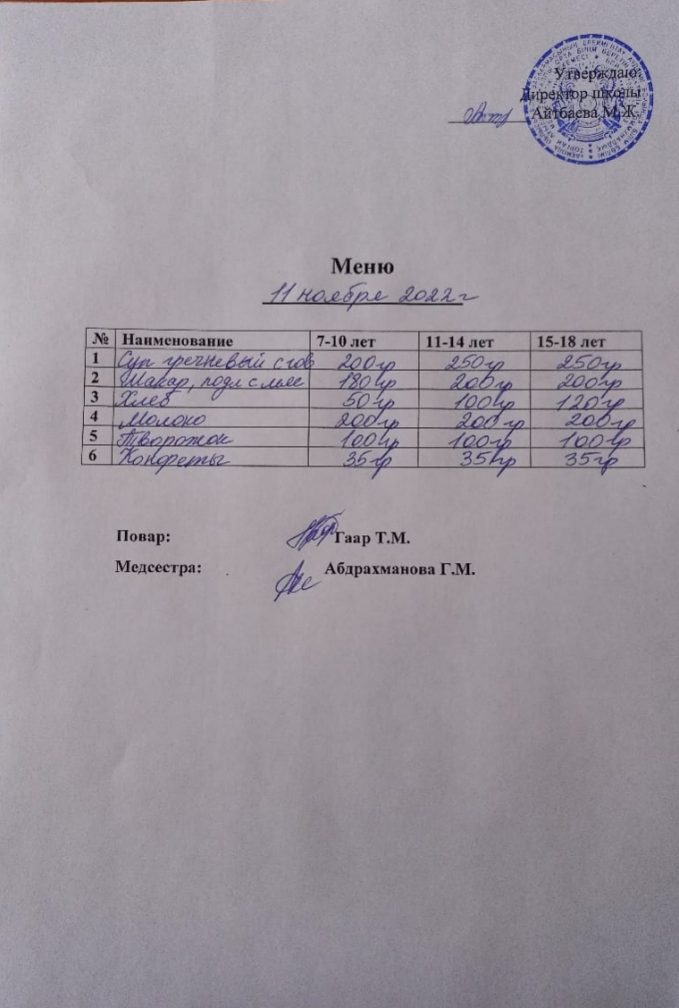 Утверждаю:
Директор школы
Айтбаева М.Ж.
Меню
11 ноябре 2022 г
№ Наименование 7-10 лет 11-14 лет 15-18 лет
1 Суп гречневый с гов 200 гр 250 гр 250 гр
2 Макар, подл с мясе 180 гр 200 гр 200 гр
3 Хлеб 50 гр 100 гр 120 гр
4 Молоко 200 гр 200 гр 200 гр
5 Творожок 100 гр 100 гр 100 гр
6 Конфеты 35 гр 35 гр 35 гр
Повар: Гаар Т.М.
Медсестра: Абдрахманова Г.М.